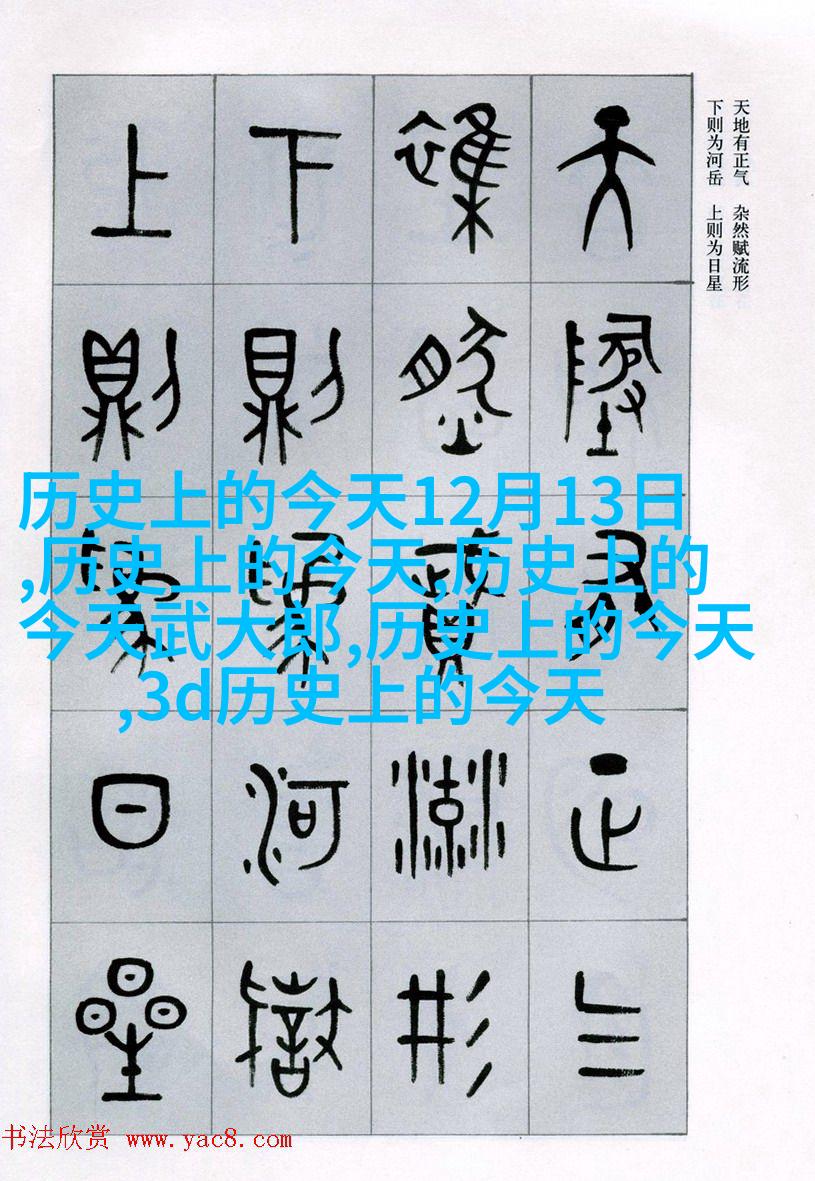 天地有正气 杂然赋流形
下则为河岳 上则为日星
天地有正气
雜然賦流形
下則為河嶽
上則為日星
历史上的今天12月13日
,历史上的今天,历史上的
今天武大郎,历史上的今天
,3d历史上的今天
书法欣赏 www.yac8.com